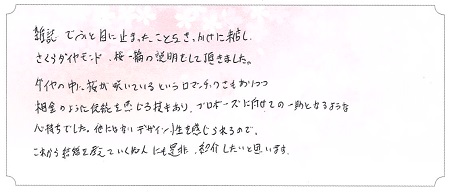 雑誌でふと目に止まったことをきっかけに来店し、
さくらダイヤモンド、桜一輪の説明をして頂きました。
ダイヤの中に桜が咲いているというロマンチックさもありつつ
のような伝統を感じる技もあり、プロポーズに向けての一助となるような
心持ちでした。他にはないデザイン性を感じられるので、
これから結婚を考えていく知人にも是非、紹介したいと思います。